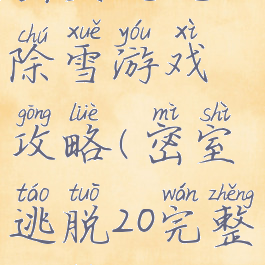 chú xuě yóu xì
除雪游戏
gōng lüè mì shì
攻略(密室
táo tuō wán zhěng
逃脱20完整